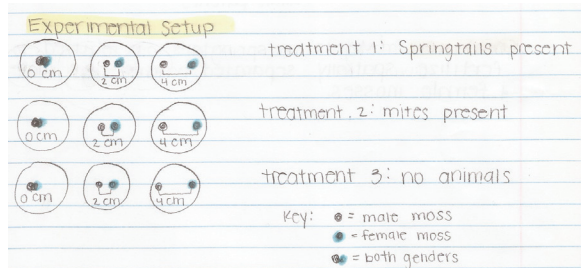 Experimental Setup
0 cm 2 cm 4 cm treatment 1: Springtails present
0 cm 2 cm 4 cm treatment 2: mites present
0 cm 2 cm 4 cm treatment 3: no animals
Key: = male moss
= female moss
= both genders